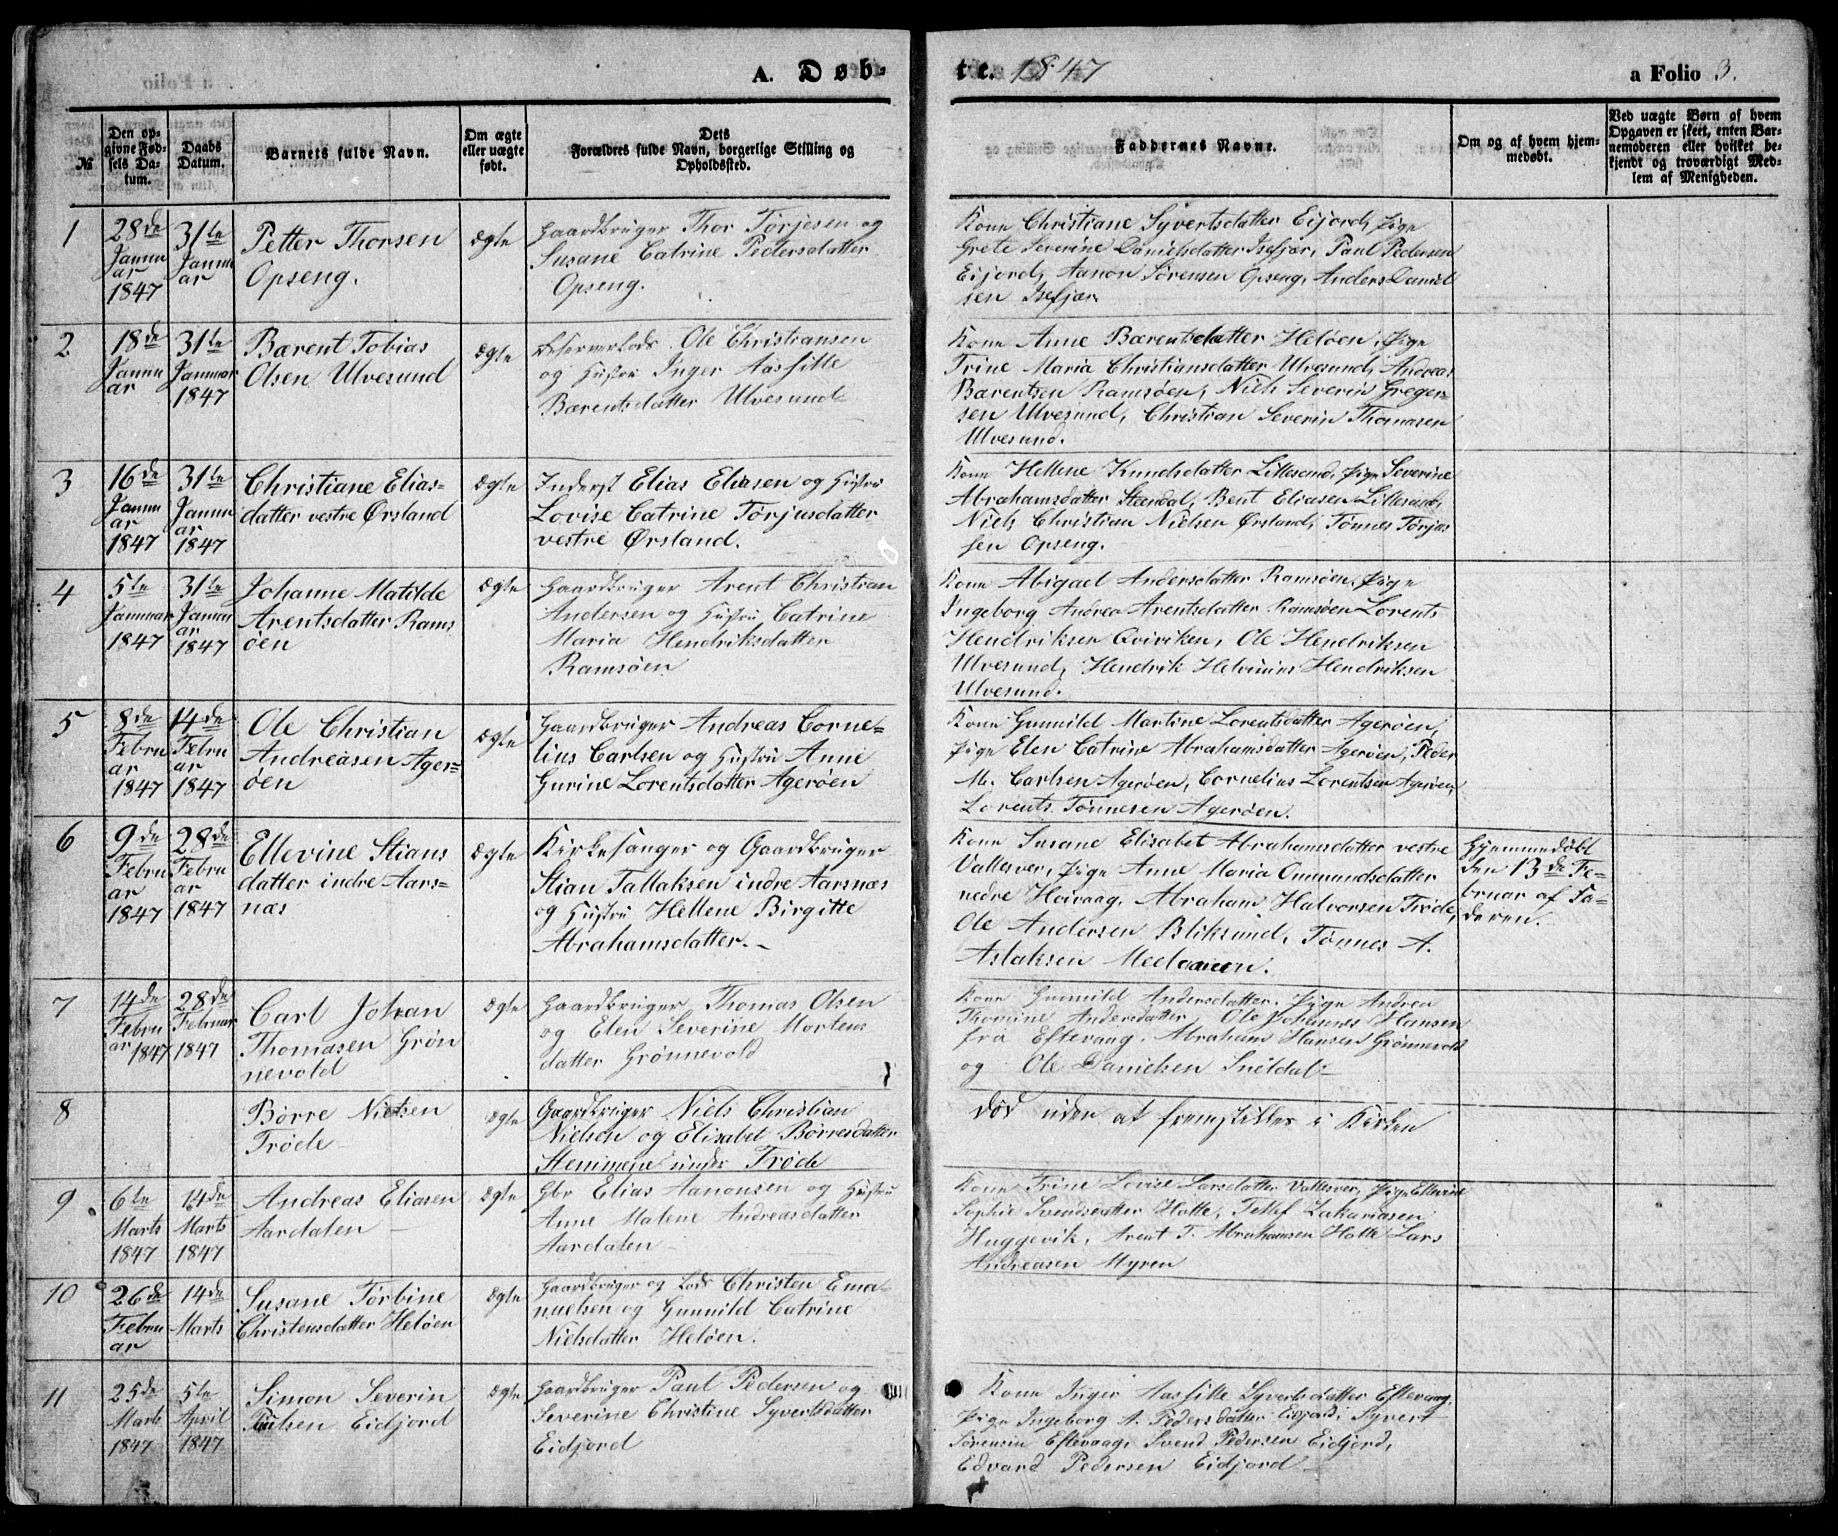 A. Døb-
te. 1847
a Folio 3.
№
Den op-
givne Fød-
sels Da-
tum.
Daabs
Datum.
Barnets fulde Navn.
Om ægte
eller uægte
født.
Dets
Forældres fulde Navn, borgerlige Stilling og
Opholdssted.
Faddernes Navne.
Om og af hvem hjem-
medøbt.
Ved uægte Børn af hvem
Opgaven er skeet, enten Bar-
nemoderen eller hvilket be-
kjendt og troværdigt Med-
lem af Menigheden.
1
28de
Janu
ar
1847
31te
Janu
ar
Petter Thorsen
Opseng.
Ægte
Gaardbruger Thor Torjesen og
Susane Catrine Pedersdatter
Opseng.
Kone Christiane Syvertsdatter Eijord, Pige
Grete Severine Danielsdatter Isefjær, Paul Pedersen
Eijord, Aanon Sørensen Opseng, Anders Daniel
sen Isefjær
2
18de
Janu
ar
31te
Januar
1847
Bærent Tobias
Olsen Ulvesund
Ægte
Reserverlods Ole Christiansen
og Hustru Inger Aasfille
Bærentsdatter Ulvesund
Kone Anne Bærentsdatter Heløen, Pige
Trine Maria Christiansdatter Ulvesund, Andreas
Bærentsen Ramsøen, Niels Severin Greger-
sen Ulvesund, Christian Severin Thomasen
Ulvesund.
3
16de
Janu
ar
1847
31te
Janu
ar
1847
Christiane Elias-
datter vestre Ørsland
Ægte
Inderst Elias Eliasen og Hustru
Lovise Catrine Torjusdatter
vestre Ørsland.
Kone Hellene Knudsdatter Lillesand, Pige Severine
Abrahamsdatter Steendal, Bent Eliasen Lillesand,
Niels Christian Nielsen Ørsland, Tønnes Torjes
sen Opseng.
4
5te
Januar
1847
31te
Janu
ar
1847
Johanne Matilde
Arentsdatter Rams
øen
Ægte
Gaardbruger Arent Christian
Andersen og Hustru Catrine
Maria Hendriksdatter
Ramsøen
Kone Abigael Andersdatter Ramsøen, Pige
Ingeborg Andrea Arentsdatter Ramsøen Lorents
Hendriksen Qviviken, Ole Hendriksen
Ulvesund, Hendrik Helvinius Hendriksen
Ulvesund.
5
8de
Febru
ar
1847
14de
Febru
ar
1847
Ole Christian
Andreasen Ager-
øen
Ægte
Gaardbruger Andreas Corne-
lius Carlsen og Hustru Anne
Gurine Lorentsdatter Agerøen
Kone Gunnild Martine Lorentsdatter Agerøen,
Pige Elen Catrine Abrahamsdatter Agerøen, Peder
M. Carlsen Agerøen, Cornelius Lorentsen Agerøen,
Lorents Tønnesen Agerøen.
6
9de
Febru
ar
1847
28de
Febru
ar
1847
Ellevine Stians
datter indre Aars-
næs
Ægte
Kirkesanger og Gaardbruger
Stian Tallaksen indre Aarsnæs
og Hustru Hellene Birgitte
Abrahamsdatter.
Kone Susane Elisabet Abrahamsdatter vestre
Vallesver, Pige Anne Maria Omundsdatter
nedre Høivaag, Abraham Halvorsen Trøde,
Ole Andersen Bliksund, Tønnes A.
Aslaksen
Hjemmedøbt
den 13de Fe-
bruar af Fa-
deren.
7
14de
Febru
ar 1847
28de
Februar
1847
Carl Johan
Thomasen Grøn
nevold
Ægte
Gaardbruger Thomas Olsen
og Elen Severine Mortens
datter Grønnevold
Kone Gunnild Andersdatter, Pige Andrea
Thomine Andersdatter, Ole Johannes Hansen
fra Eftevaag, Abraham Hansen Grønnevold
og Ole Danielsen Sneldal
8
Børre Nielsen
Trøde
Ægte
Gaardbruger Niels Christian
Nielsen og Elisabet Børresdatter
Stemmene under Trøde
død uden at fremstilles i Kirken
9
6te
Marts
1847
14de
Marts
1847
Andreas Eliasen
Aardalen
Ægte
Gbr Elias Aanonsen og Hustru
Anne Malene Andreasdatter
Aardalen
Kone Trine Lovise Larsdatter Vallesver, Pige Ellevine
Sophie Svendsdatter Holte, Tellef Zakariasen
Huggevik, Arent T. Abrahamsen Holte Lars
Andreasen Myren
10
26de
Febru
ar
14de
Marts
Susane Torbine
Christensdatter Heløen
Ægte
Gaardbruger og Lods Christen Ema-
nuelsen og Gunnild Catrine
Nielsdatter Heløen.
11
25de
Marts
1847
5te
April
1847
Simon Severin
Paulsen Eidjord
Ægte
Gaardbruger Paul Pedersen og
Severine Christine Syvertsdatter
Eidjord
Kone Inger Aasfille Syvertsdatter Eftevaag,
Pige Ingeborg A. Pedersdatter Eidjord, Syvert
Sørensen Eftevaag, Svend Pedersen Eidjord,
Edvard Pedersen Eidjord